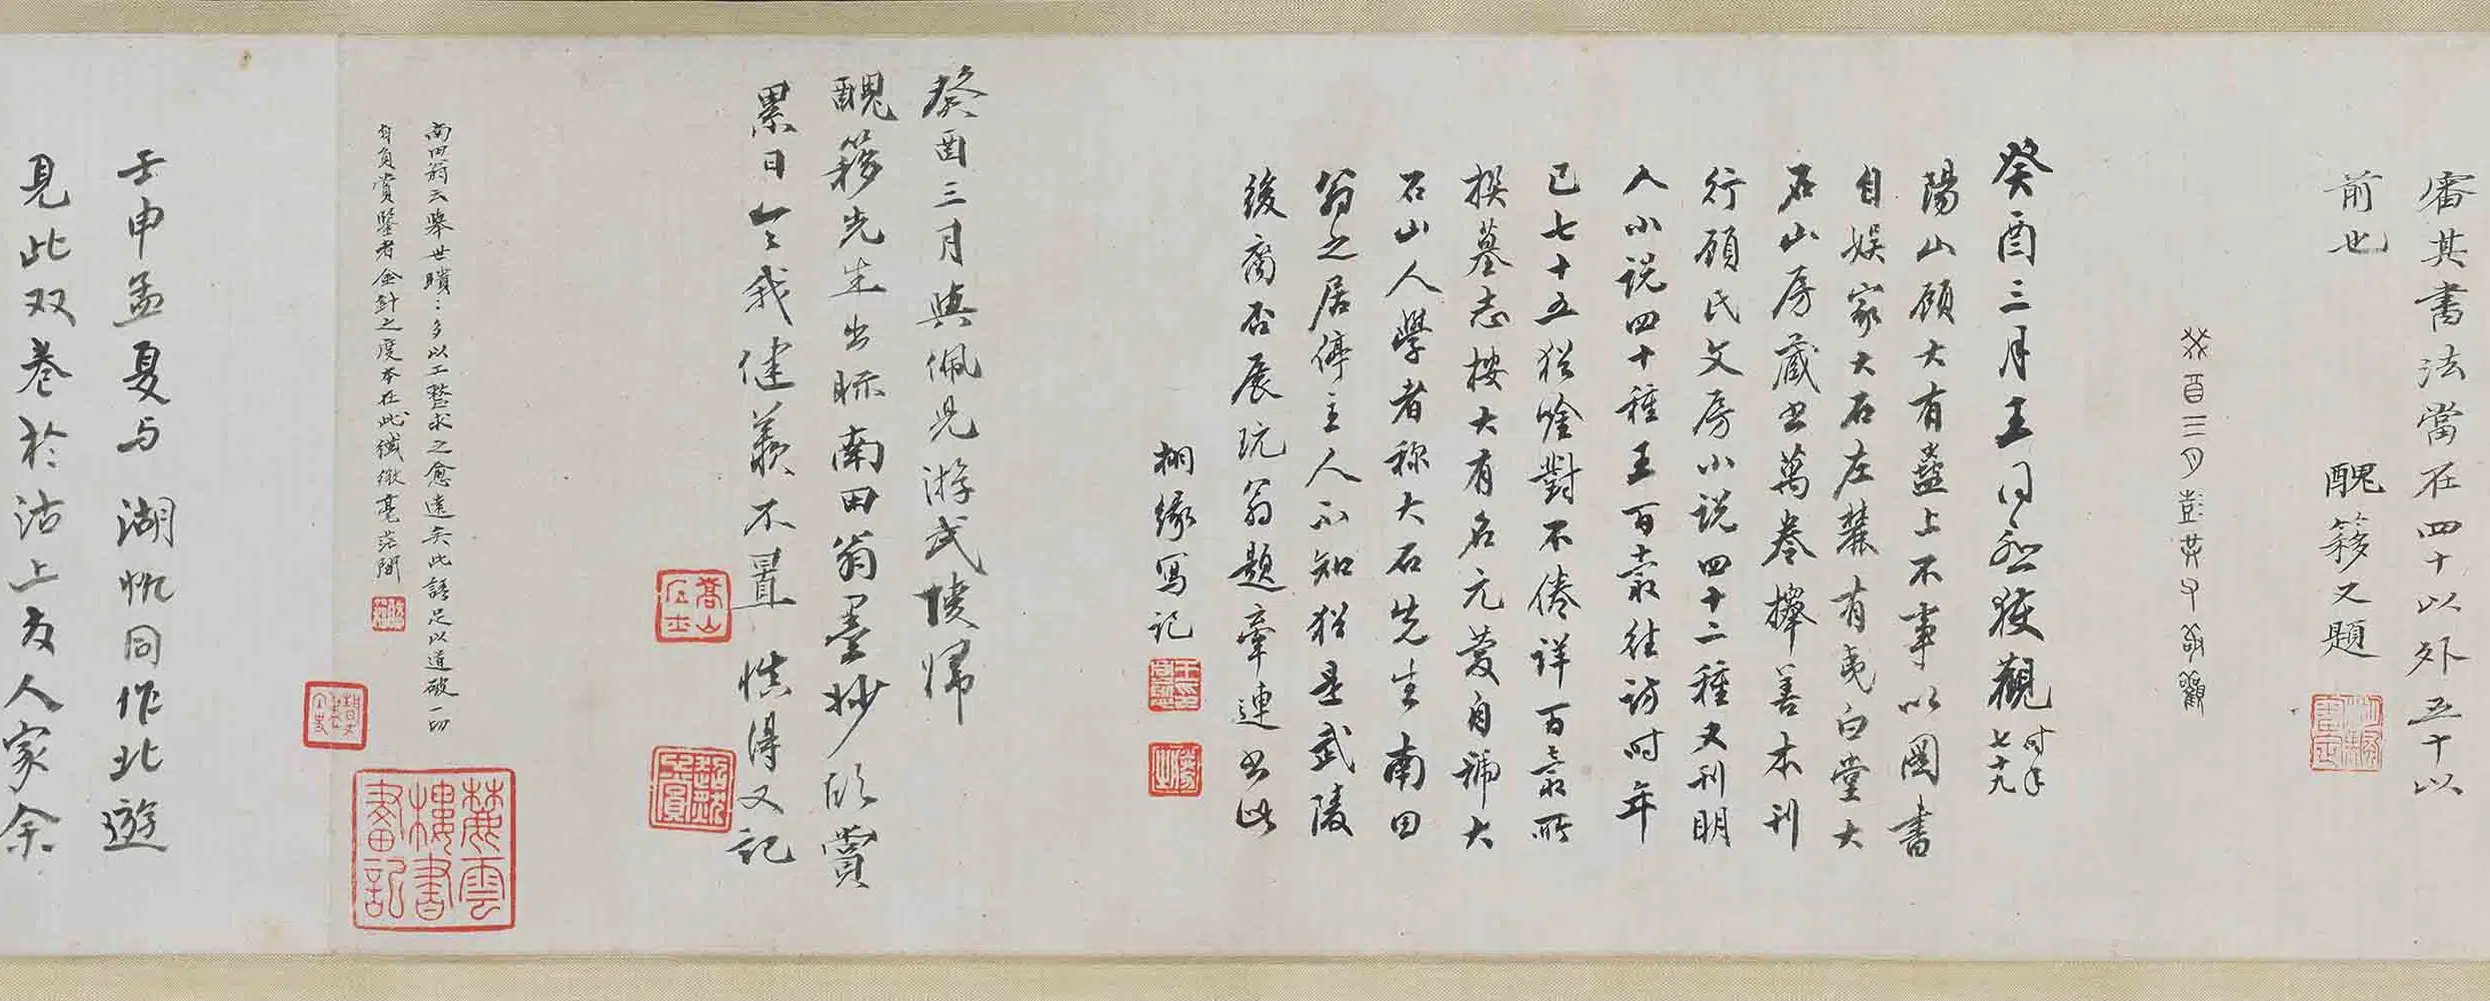 審其書法當在四十以外五十以
前也 醜簃又題
癸酉三月王同愈獲觀 时年七十九
陽山顾大有盖上不事以圖書
自娱家大石左麓有夷白堂大
石山房藏书萬卷擇善本刊
行顾氏文房小说四十二種又刊明
人小说四十種王百穀往訪时年
已七十五猶唫對不倦详百穀所
撰墓志按大有名元慶自號大
石山人學者称大石先生南田
翁之居停主人不知猶是武陵
後裔否展玩翁題牽連书此
栩缘写记
癸酉三月與佩兄游武陵歸
醜簃先生出眎南田翁墨妙欣賞
累日令我健羡不置 慎得又記
南田翁云舉世瞶瞶多以工整求之愈遠矣此語足以道破一切
自負賞鑒者金針之度不在此纖微毫茫間
壬申孟夏与 湖帆同作北遊
見此双卷於沽上友人家余